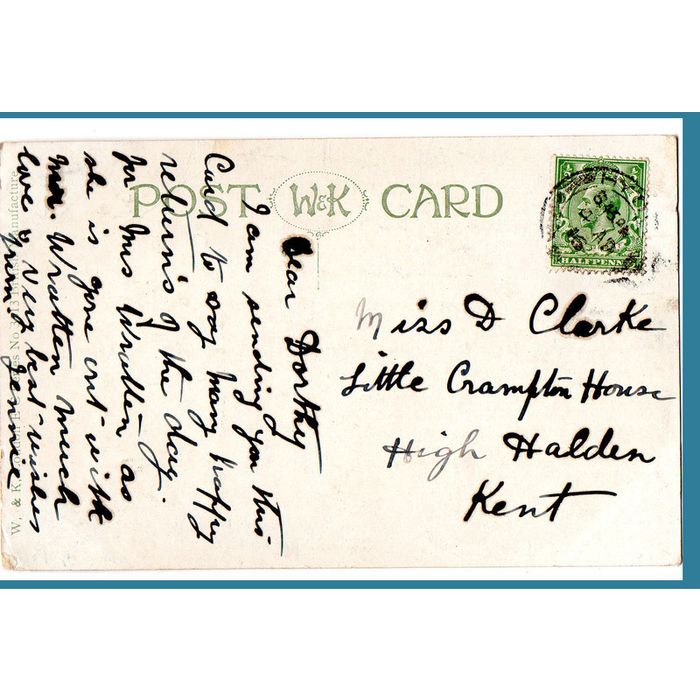 POST W&K CARD
HALFPENNY
Dear Dorthy
I am sending you this
Card to say many happy
return's of the day.
for Mrs Wratten as
she is gone out with
Mr. Wratten much
love & very best wishes
from Jennie
Miss D Clarke
Little Crampton House
High Halden
Kent
W. & K.